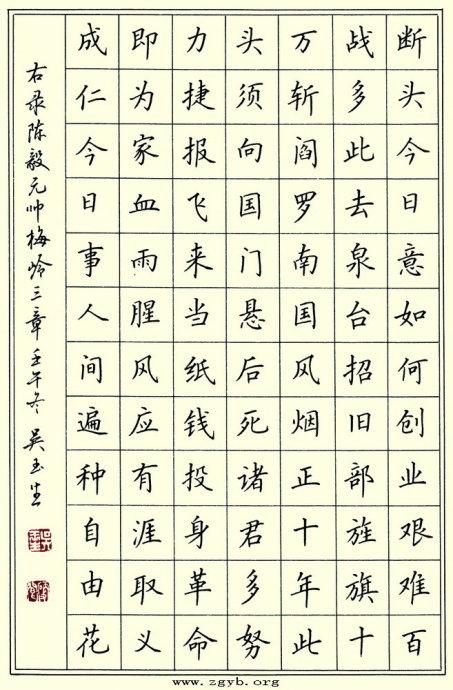 断头今日意如何创业艰难百
战多此去泉台招旧部旌旗十
万斩阎罗南国风烟正十年此
头须向国门悬后死诸君多努
力捷报飞来当纸钱投身革命
即为家血雨腥风应有涯取义
成仁今日事人间遍种自由花
右录陈毅元帅梅岭三章壬午冬 吴玉生
www.zgyb.org